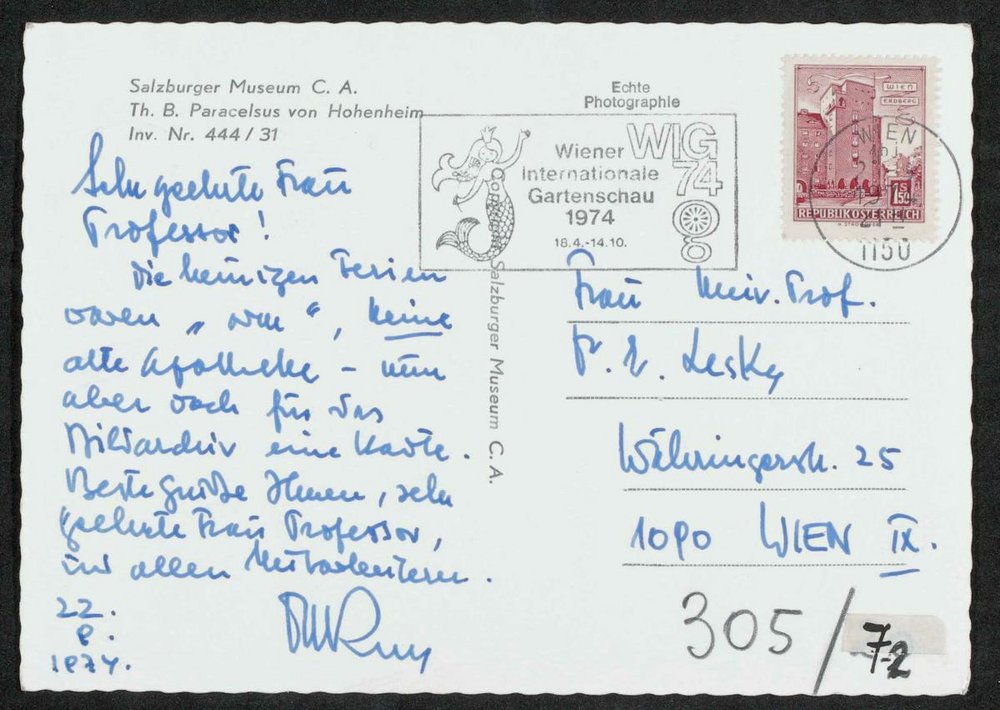 Salzburger Museum C. A.
Th. B. Paracelsus von Hohenheim
Inv. Nr. 444/31
Echte
Photographie
Wiener
Internationale
Gartenschau
1974
18.4.-14.10.
WIG
74
WIEN
ERDBERG
S
1.50
REPUBLIK ÖSTERREICH
WIEN
1150
Salzburger Museum C. A.
Sehr geehrte Frau
Professor!
Die heurigen Ferien
waren „ “, keine
alte Apotheke – nun
aber doch für das
Bildarchiv eine Karte.
Beste Grüße Ihnen, sehr
geehrte Frau Professor,
und allen Mitarbeitern.
22.
8.
1974.
Frau Univ. Prof.
Dr. E. Lesky
Währingerstr. 25
1090 WIEN IX.
305/
72